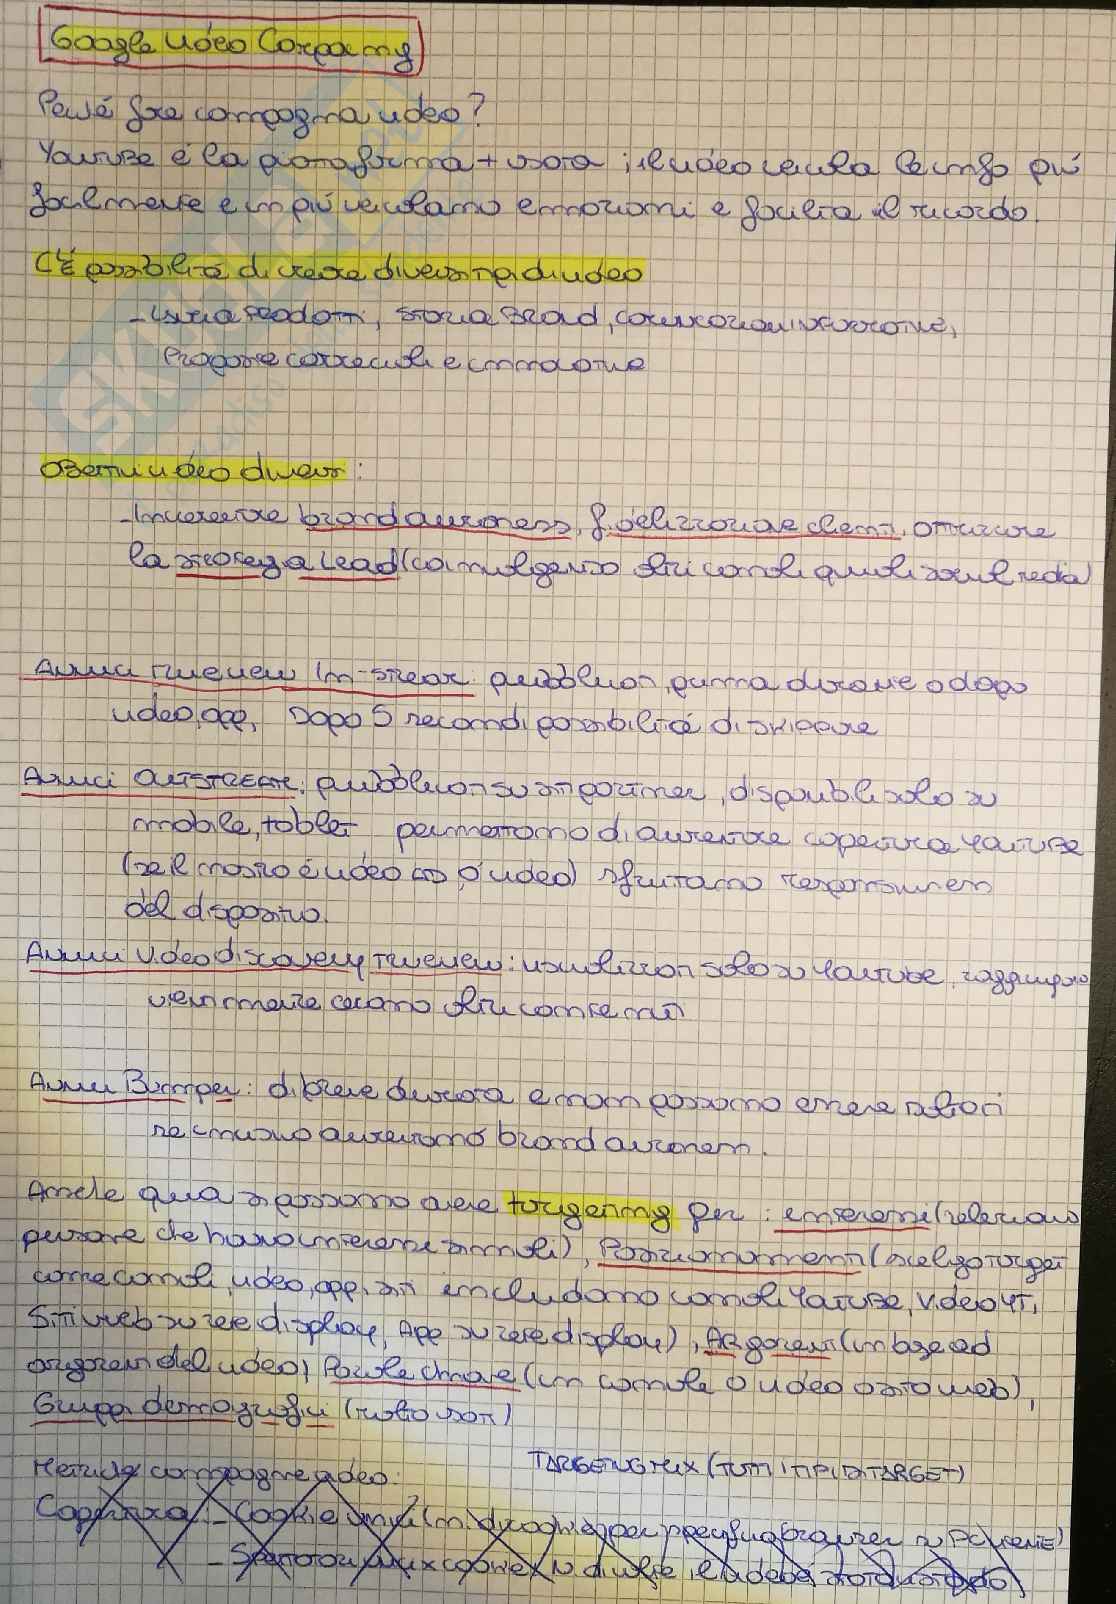 Google Video Campaing
Perché fare campagna video?
Youtube è la piattaforma + usata, il video veicola le info più
facilmente e in più veicolano emozioni e facilita il ricordo.
C'è possibilità di creare diversi tipi di video
- Lista Prodotti, Storia Brand,
Proporre correlati e
Obettivi video diversi:
- Incrementare brand awareness, fidelizzazione clienti, ottimizzare
la strategy a Lead (coinvolgendo altri canali quali social media)
Annunci Trueview In-Stream: pubblicati prima durante o dopo
video, app, Dopo 5 secondi possibilità di skippare
Annunci OUTSTREAM: pubblicati su siti partner, disponibili solo su
mobile, tablet permettono di aumentare copertura Youtube
(se il nostro è video ads o video) sfruttano
del dispositivo.
Annunci Video discovery Trueview: visualizzati solo su Youtube, raggiungono
utenti mentre cercano altri contenuti
Annunci Bumper: di breve durata e non possono essere saltati
aumentano brand awareness.
Anche qua si possono avere targeting per: interessi (seleziono
persone che hanno interessi simili), Posizionamenti (scelgo target
come canali, video, app, siti includono canali Youtube, Video YT,
Siti web su rete display, App su rete display), Argomenti (in base ad
argomenti del video) Parole chiave (in canale o video o sito web),
Gruppi demografici (
Metriche campagne video: TARGETING MIX (TUTTI I TIPI DI TARGET)
Copertura: - Cookie unici (n. di cookie per browser su PC utente)
- Spettatori unici